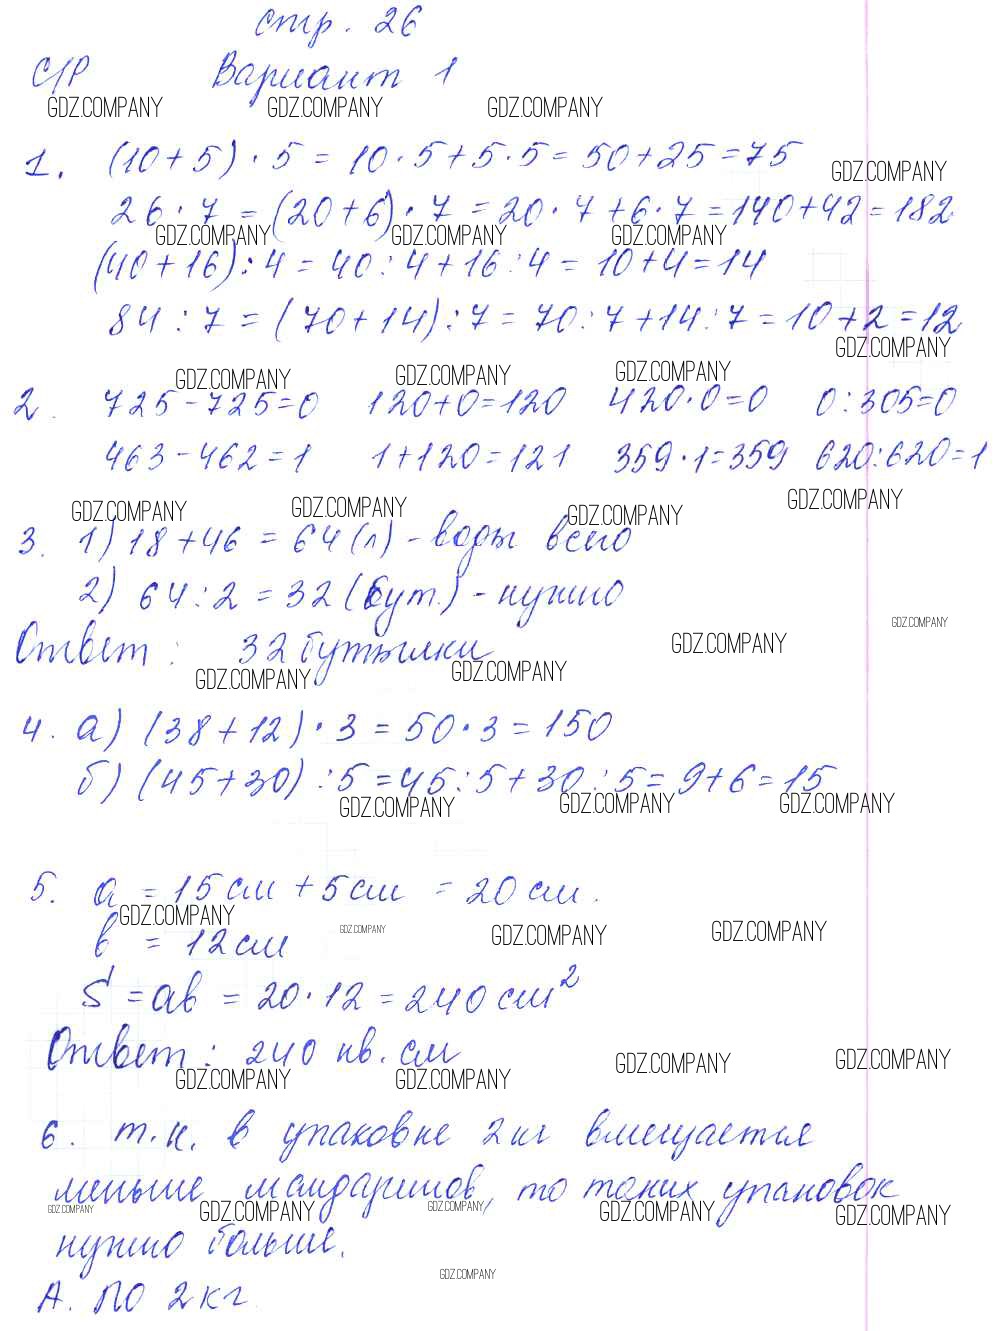 стр. 26
С/Р Вариант 1
GDZ.COMPANY GDZ.COMPANY GDZ.COMPANY
1. (10+5)·5=10·5+5·5=50+25=75
GDZ.COMPANY
26·7=(20+6)·7=20·7+6·7=140+42=182
GDZ.COMPANY GDZ.COMPANY GDZ.COMPANY
(40+16):4=40:4+16:4=10+4=14
84:7=(70+14):7=70:7+14:7=10+2=12
GDZ.COMPANY
GDZ.COMPANY GDZ.COMPANY GDZ.COMPANY
2. 725-725=0 120+0=120 420·0=0 0:305=0
463-462=1 1+120=121 359·1=359 620:620=1
GDZ.COMPANY GDZ.COMPANY GDZ.COMPANY GDZ.COMPANY
3. 1) 18+46=64(л)-воды всего
2) 64:2=32(бут.)-нужно
GDZ.COMPANY
Ответ: 32 бутылки
GDZ.COMPANY GDZ.COMPANY GDZ.COMPANY
4. а) (38+12)·3=50·3=150
б) (45+30):5=45:5+30:5=9+6=15
GDZ.COMPANY GDZ.COMPANY GDZ.COMPANY
5. a=15см+5см=20см.
GDZ.COMPANY
b=12см
GDZ.COMPANY GDZ.COMPANY GDZ.COMPANY
S=ab=20·12=240см²
Ответ: 240 кв.см
GDZ.COMPANY GDZ.COMPANY GDZ.COMPANY GDZ.COMPANY
6. т.к. в упаковке 2кг вмещается
меньше мандаринов, то таких упаковок
GDZ.COMPANY GDZ.COMPANY GDZ.COMPANY GDZ.COMPANY GDZ.COMPANY
нужно больше.
GDZ.COMPANY
А. по 2кг.